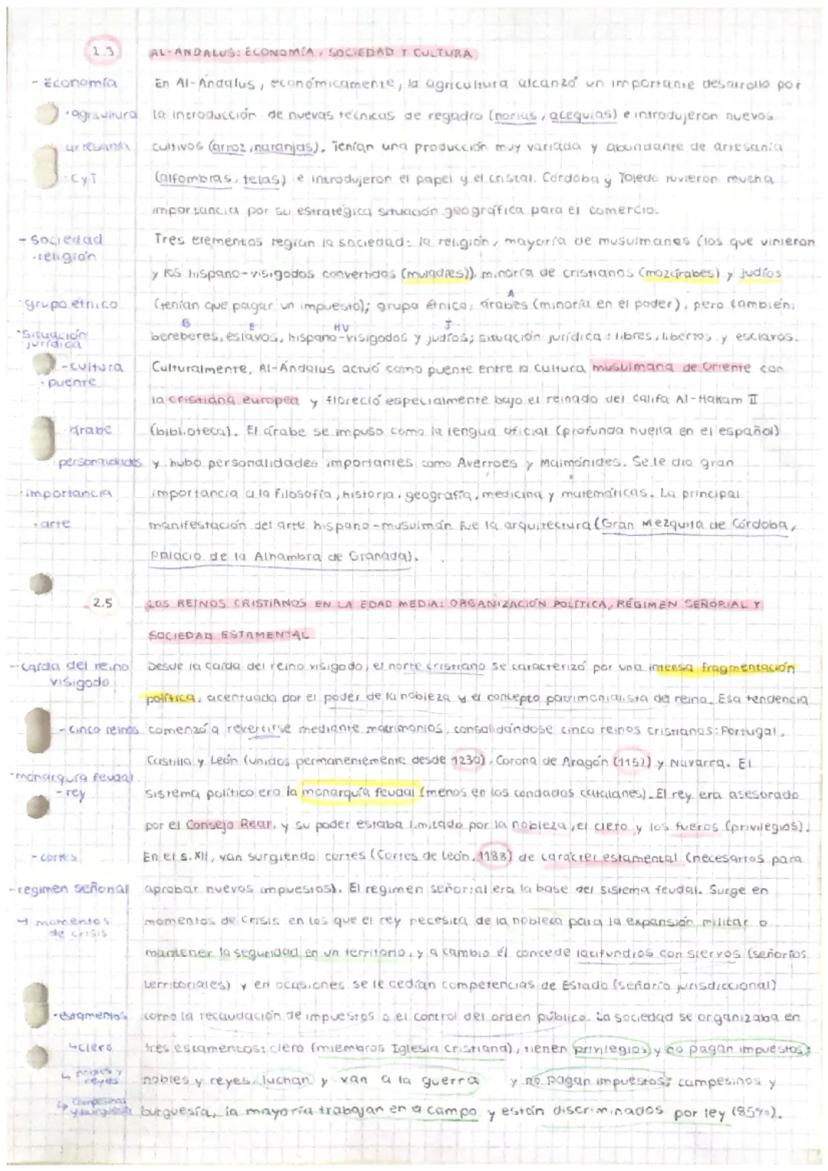 2.3 AL-ÁNDALUS: ECONOMÍA, SOCIEDAD Y CULTURA
- Economía En Al-Ándalus, económicamente, la agricultura alcanzó un importante desarrollo por
· agricultura la introducción de nuevas técnicas de regadío (norias, acequias) e introdujeron nuevos
artesanía cultivos (arroz, naranjas). Tenían una producción muy variada y abundante de artesanía
· CyT (alfombras, telas) e introdujeron el papel y el cristal. Córdoba y Toledo tuvieron mucha
importancia por su estratégica situación geográfica para el comercio.
- Sociedad Tres elementos regían la sociedad: la religión, mayoría de musulmanes (los que vinieron
· religión y los hispano-visigodos convertidos (muladíes)), minoría de cristianos (mozárabes) y judíos
A
· grupo étnico (tenían que pagar un impuesto); grupo étnico, árabes (minoría en el poder), pero también:
B E HV J
· Situación jurídica bereberes, eslavos, hispano-visigodos y judíos; situación jurídica: libres, libertos y esclavos.
- Cultura Culturalmente, Al-Ándalus actuó como puente entre la cultura musulmana de Oriente con
· puente
la cristiana europea y floreció especialmente bajo el reinado del califa Al-Hakam II
· árabe (biblioteca). El árabe se impuso como la lengua oficial (profunda huella en el español)
personalidades y hubo personalidades importantes como Averroes y Maimónides. Se le dio gran
· importancia importancia a la filosofía, historia, geografía, medicina y matemáticas. La principal
· arte manifestación del arte hispano-musulmán fue la arquitectura (Gran Mezquita de Córdoba,
Palacio de la Alhambra de Granada).
2.5 LOS REINOS CRISTIANOS EN LA EDAD MEDIA: ORGANIZACIÓN POLÍTICA, RÉGIMEN SEÑORIAL Y
SOCIEDAD ESTAMENTAL
- Caída del reino visigodo Desde la caída del reino visigodo, el norte cristiano se caracterizó por una intensa fragmentación
política, acentuada por el poder de la nobleza y el concepto patrimonialista del reino. Esa tendencia
- cinco reinos comenzó a revertirse mediante matrimonios, consolidándose cinco reinos cristianos: Portugal,
Castilla y León (unidos permanentemente desde 1230), Corona de Aragón (1152) y Navarra. El
- monarquía feudal
- rey sistema político era la monarquía feudal (menos en los condados catalanes). El rey era asesorado
por el Consejo Real, y su poder estaba limitado por la nobleza, el clero y los fueros (privilegios).
- cortes En el s. XII, van surgiendo cortes (Cortes de León, 1188) de carácter estamental (necesarios para
- regimen señorial aprobar nuevos impuestos). El regimen señorial era la base del sistema feudal. Surge en
→ momentos de crisis momentos de crisis en los que el rey necesita de la nobleza para la expansión militar o
mantener la seguridad en un territorio, y a cambio él concede latifundios con siervos (señoríos
territoriales) y en ocasiones se le cedían competencias de Estado (señorío jurisdiccional)
- estamentos como la recaudación de impuestos o el control del orden público. La sociedad se organizaba en
↳ clero tres estamentos: clero (miembros Iglesia Cristiana), tienen privilegios y no pagan impuestos;
↳ nobles y reyes nobles y reyes, luchan y van a la guerra y no pagan impuestos; campesinos y
↳ campesinos y burguesía burguesía, la mayoría trabajan en el campo y están discriminados por ley (85%).